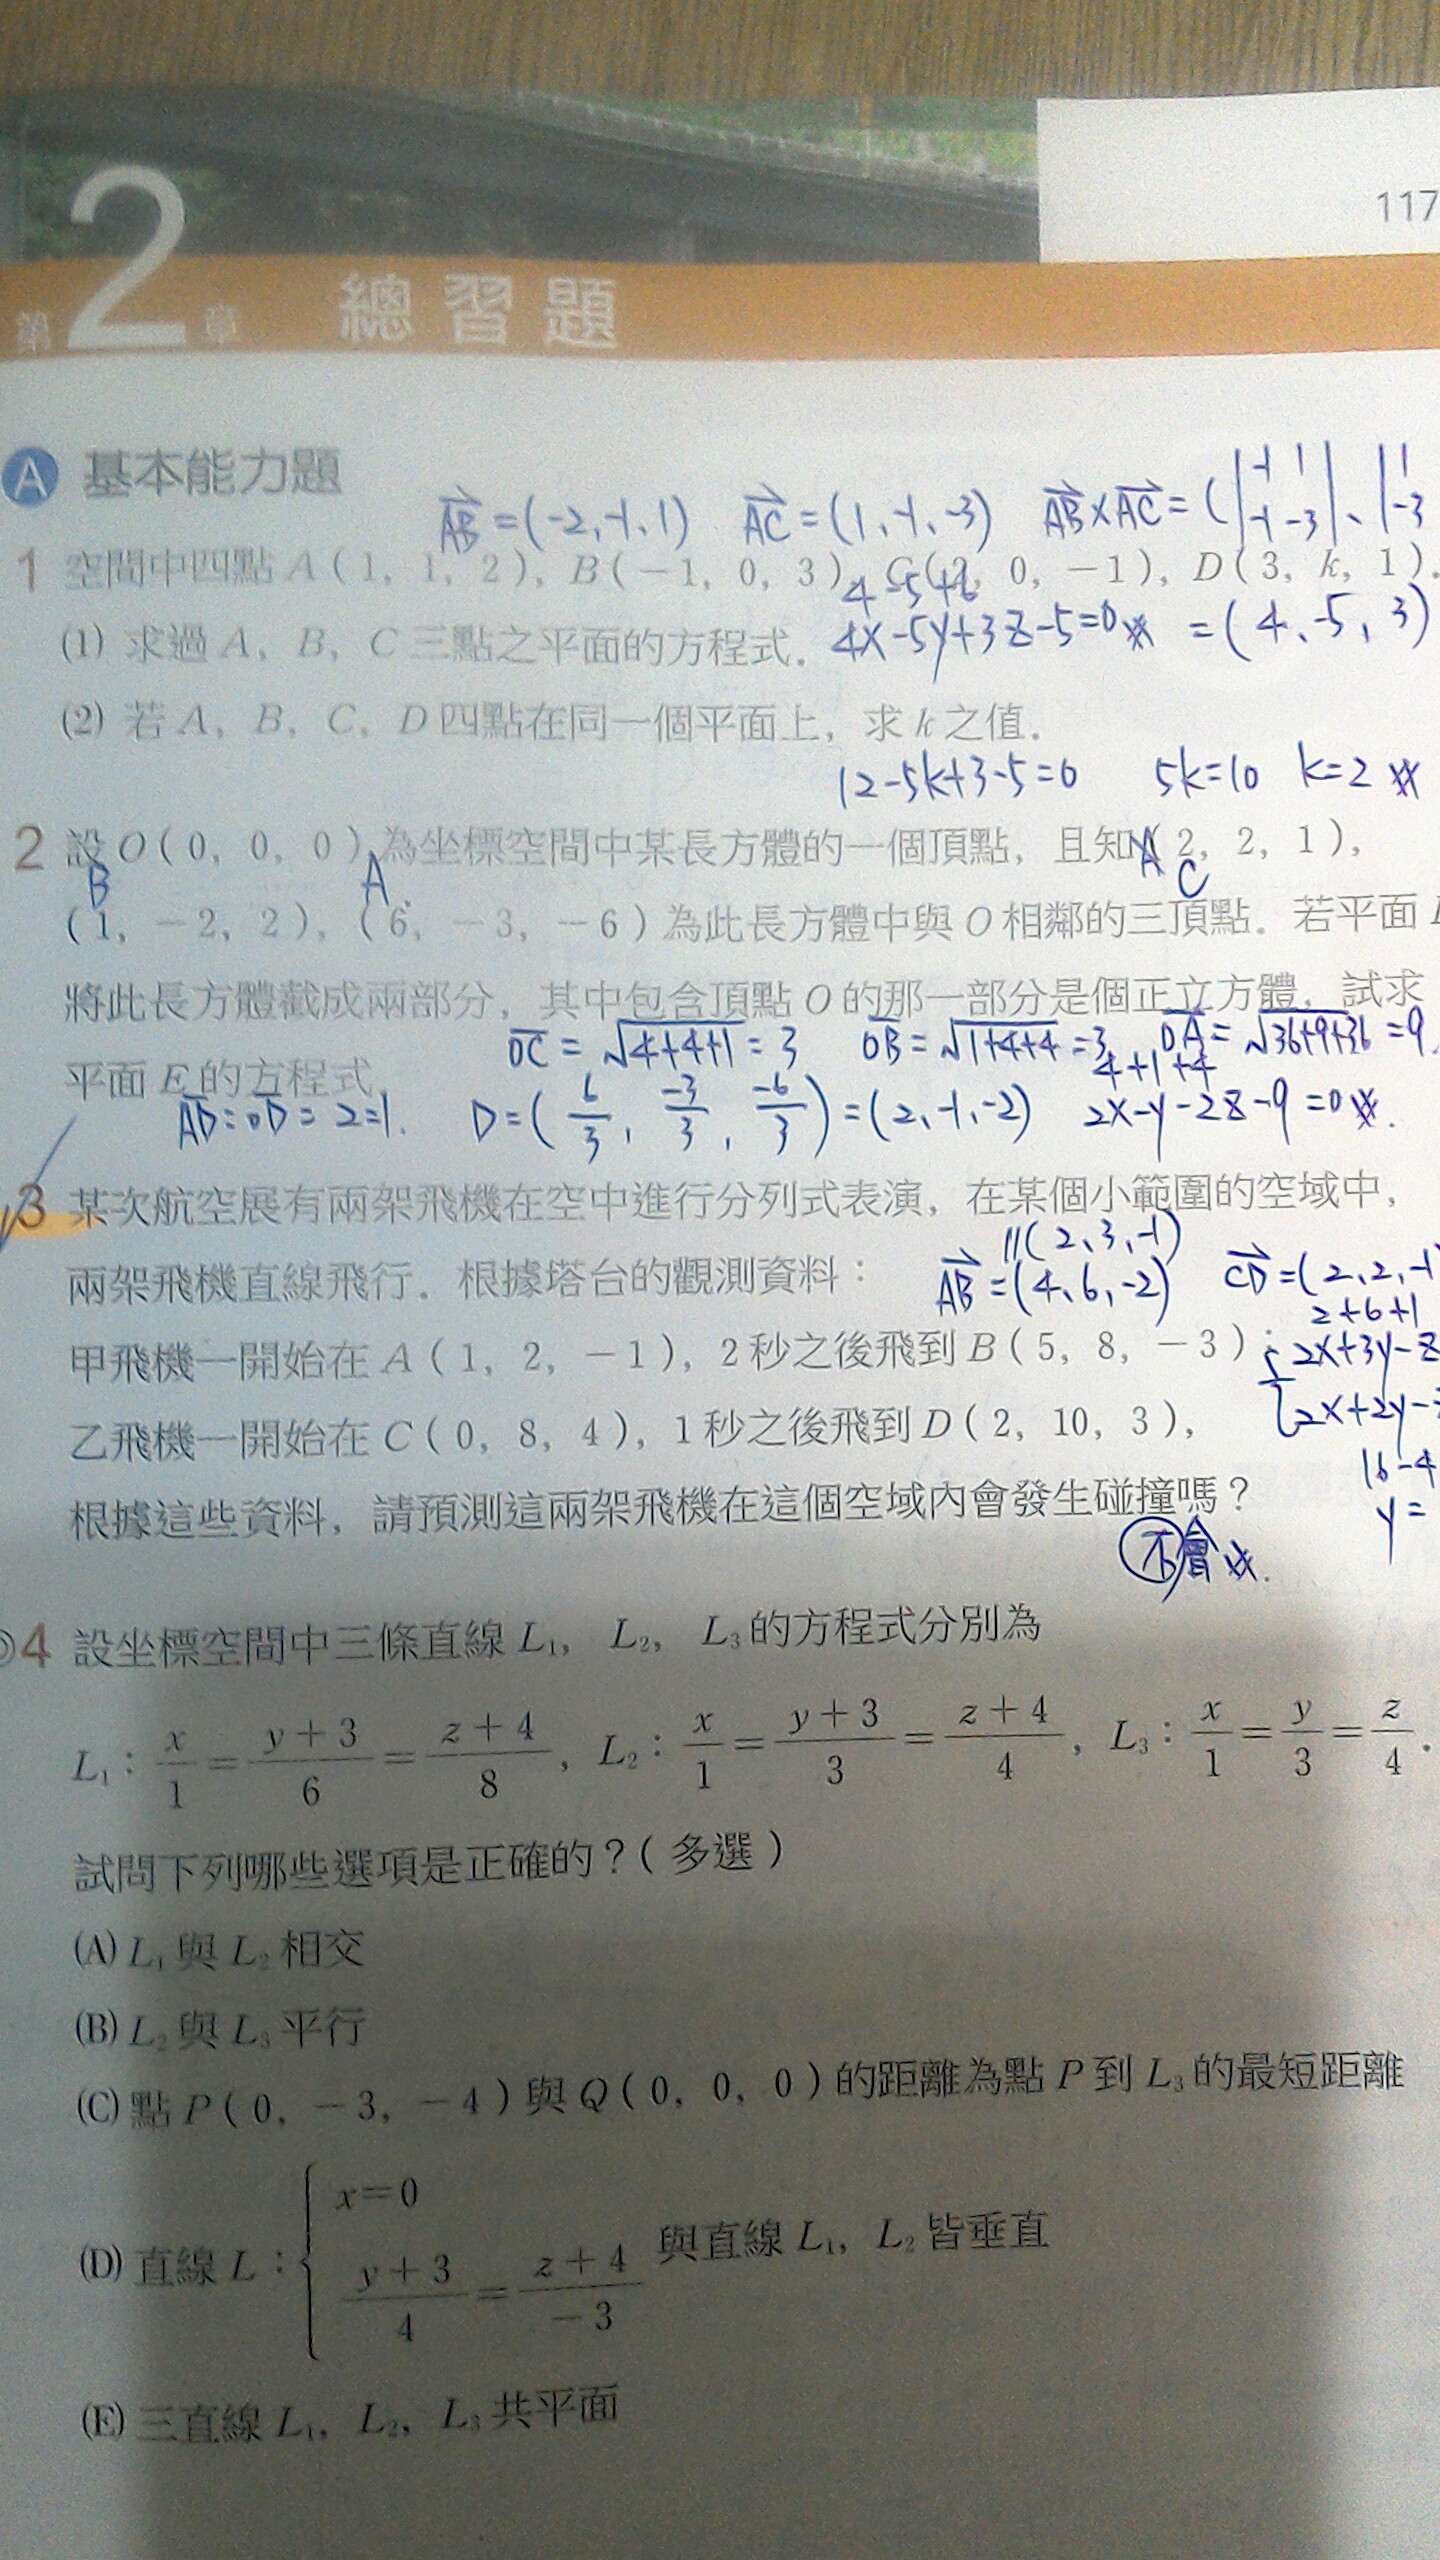 117
第2章 總習題
A 基本能力題
AB=(-2,-1,1) AC=(1,-1,-3) AB×AC=(|-1 1 -1 -3|、|1 -3
1 空間中四點A(1, 1, 2), B(-1, 0, 3), C(2, 0, -1), D(3, k, 1).
4-5+6
(1) 求過A, B, C三點之平面的方程式. 4x-5y+3z-5=0 =(4、-5,3)
(2) 若A, B, C, D四點在同一個平面上, 求k之值.
12-5k+3-5=0 5k=10 k=2
2 設O(0, 0, 0)為坐標空間中某長方體的一個頂點, 且知(2, 2, 1),
B A C
(1, -2, 2), (6, -3, -6)為此長方體中與O相鄰的三頂點. 若平面
將此長方體截成兩部分, 其中包含頂點O的那一部分是個正立方體, 試求
OC=√4+4+1=3 OB=√1+4+4=3 OA=√36+9+36=9
平面E的方程式.
4+1+4
AD:OD=2:1. D=(6/3, -3/3, -6/3)=(2,-1,-2) 2x-y-2z-9=0
3 某次航空展有兩架飛機在空中進行分列式表演, 在某個小範圍的空域中,
//(2、3,-1)
兩架飛機直線飛行. 根據塔台的觀測資料:
AB=(4、6,-2) CD=(2、2,-1
2+6+1
甲飛機一開始在A(1, 2, -1), 2秒之後飛到B(5, 8, -3);
2x+3y-z
2x+2y-
乙飛機一開始在C(0, 8, 4), 1秒之後飛到D(2, 10, 3),
16-4
根據這些資料, 請預測這兩架飛機在這個空域內會發生碰撞嗎?
y=
不會
4 設坐標空間中三條直線L₁, L₂, L₃的方程式分別為
L₁: x/1=(y+3)/6=(z+4)/8, L₂: x/1=(y+3)/3=(z+4)/4, L₃: x/1=y/3=z/4.
試問下列哪些選項是正確的?(多選)
(A) L₁與L₂相交
(B) L₂與L₃平行
(C) 點P(0, -3, -4)與Q(0, 0, 0)的距離為點P到L₃的最短距離
(D) 直線L: { x=0 (y+3)/4=(z+4)/-3 與直線L₁, L₂皆垂直
(E) 三直線L₁, L₂, L₃共平面